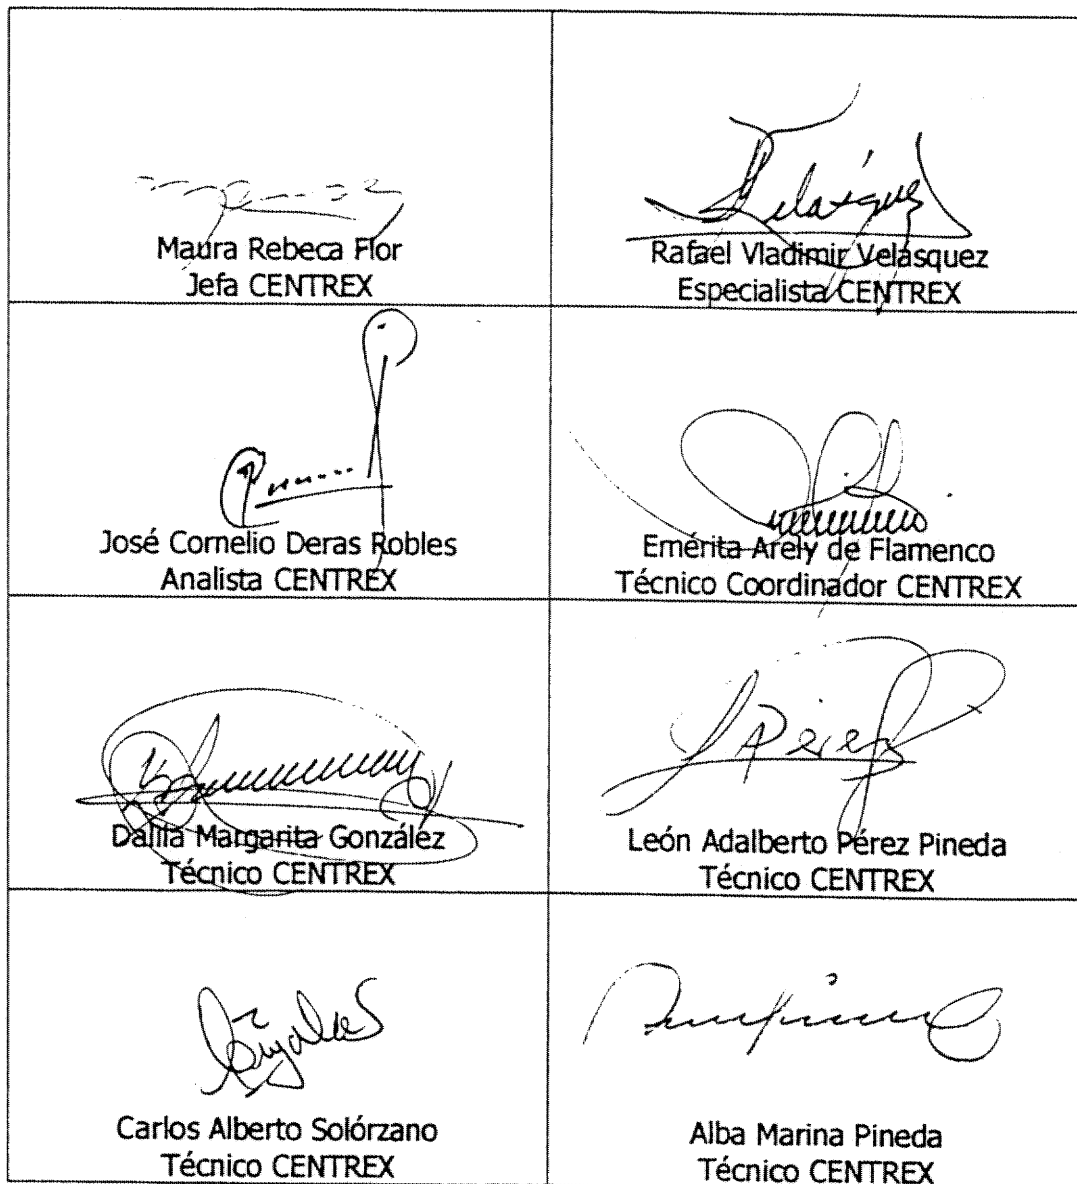 Maura Rebeca Flor
Jefa CENTREX
Velásquez
Rafael Vladimir Velásquez
Especialista CENTREX
José Cornelio Deras Robles
Analista CENTREX
Emérita Arely de Flamenco
Técnico Coordinador CENTREX
Dalila Margarita González
Técnico CENTREX
LAPérez
León Adalberto Pérez Pineda
Técnico CENTREX
Carlos Alberto Solórzano
Técnico CENTREX
Alba Marina Pineda
Técnico CENTREX